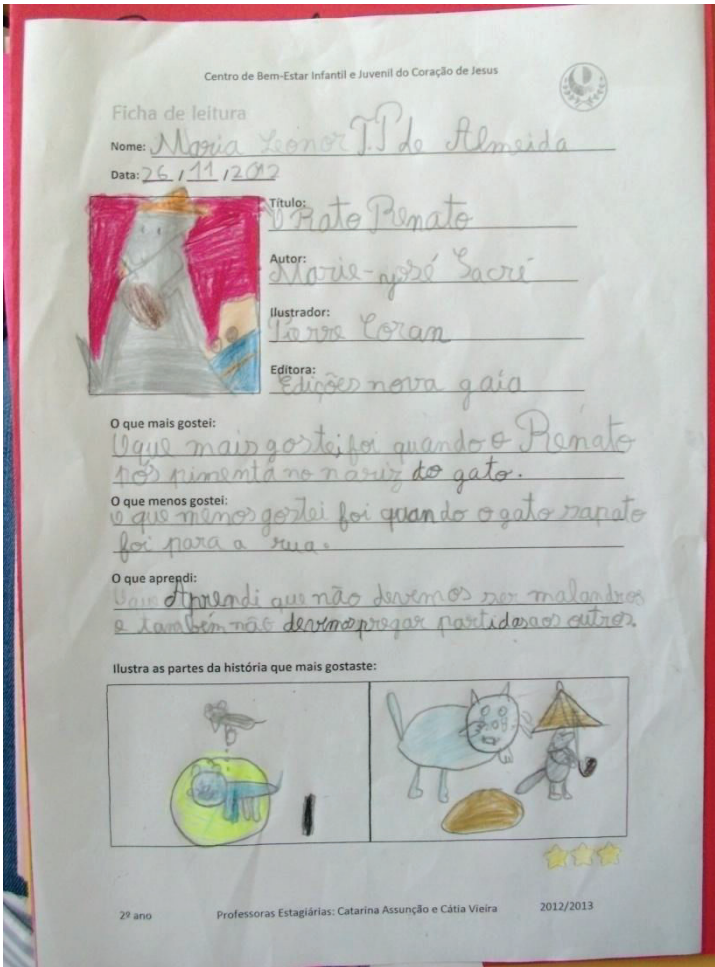 Centro de Bem-Estar Infantil e Juvenil do Coração de Jesus
Ficha de leitura
Nome: Maria Leonor T.P de Almeida
Data: 26 / 11 / 2012
Título:
O Rato Renato
Autor:
Marie-José Sacré
Ilustrador:
Pierre Coran
Editora:
Edições nova gaia
O que mais gostei:
O que mais gostei, foi quando o Renato
pôs pimenta no nariz do gato.
O que menos gostei:
O que menos gostei foi quando o gato sapato
foi para a rua.
O que aprendi:
Aprendi que não devemos ser malandros
e também não devemos pregar partidas aos outros.
Ilustra as partes da história que mais gostaste:
2º ano
Professoras Estagiárias: Catarina Assunção e Cátia Vieira
2012/2013